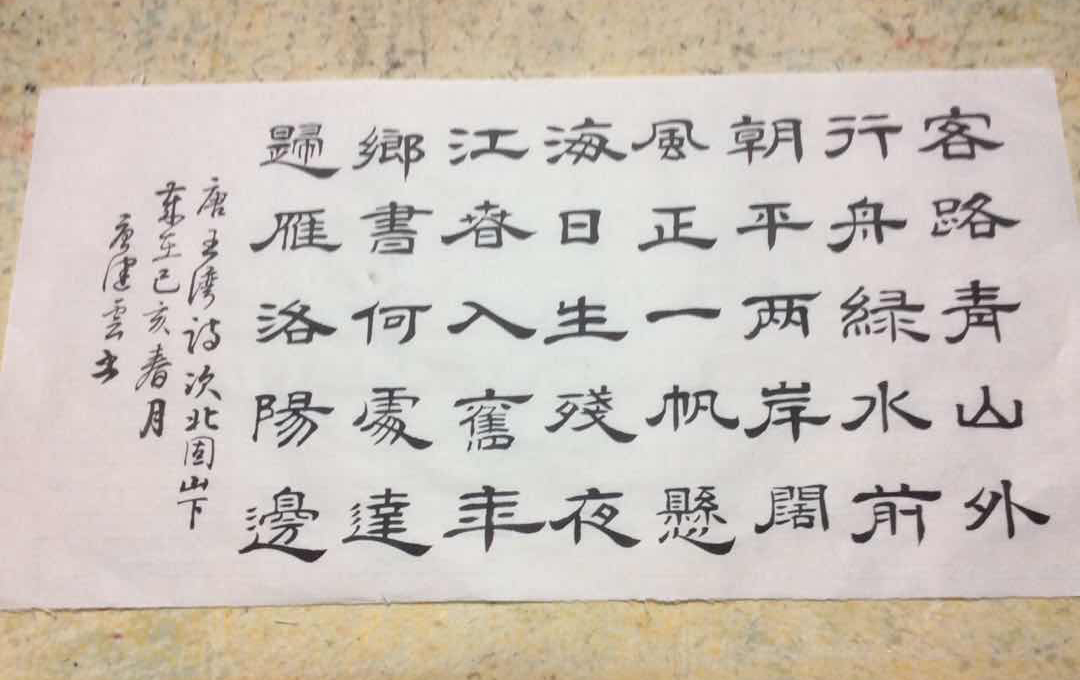 客路青山外
行舟綠水前
朝平两岸闊
風正一帆懸
海日生殘夜
江春入舊年
鄉書何處達
歸雁洛陽邊
唐王湾诗次北固山下
歲在己亥春月
唐雲书